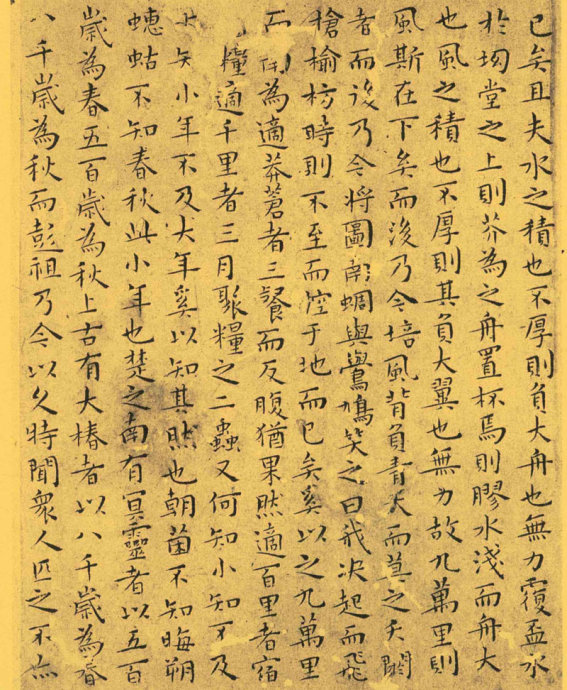 已矣且夫水之積也不厚則負大舟也無力覆盃水
於坳堂之上則芥為之舟置杯焉則膠水淺而舟大
也風之積也不厚則其負大翼也無力故九萬里則
風斯在下矣而後乃今培風背負青天而莫之夭閼
者而後乃今將圖南蜩與鷽鳩笑之曰我決起而飛
槍榆枋時則不至而控于地而已矣奚以之九萬里
而南為適莽蒼者三飡而反腹猶果然適百里者宿
糧適千里者三月聚糧之二蟲又何知小知不及
小年不及大年奚以知其然也朝菌不知晦朔
蟪蛄不知春秋此小年也楚之南有冥靈者以五百
歲為春五百歲為秋上古有大椿者以八千歲為春
八千歲為秋而彭祖乃今以久特聞衆人匹之不